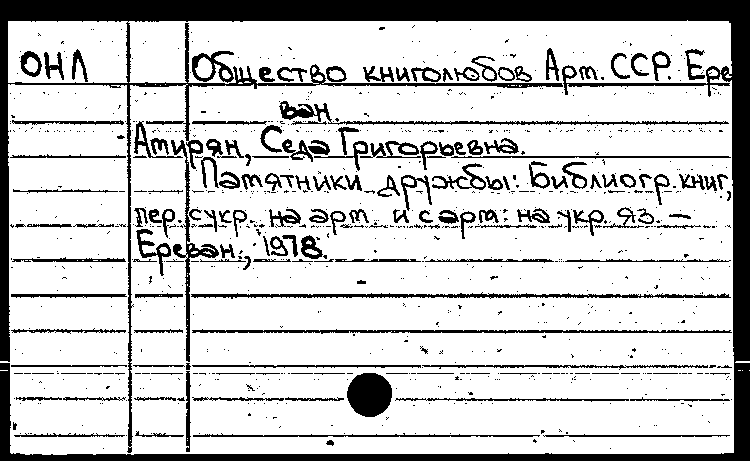 ОНЛ Общество книголюбов Арм. ССР. Ере
ван.
Амирян, Седа Григорьевна.
Памятники дружбы: Библиогр. книг,
пер. с укр. на арм. и с арм: на укр. яз. —
Ереван., 1978.